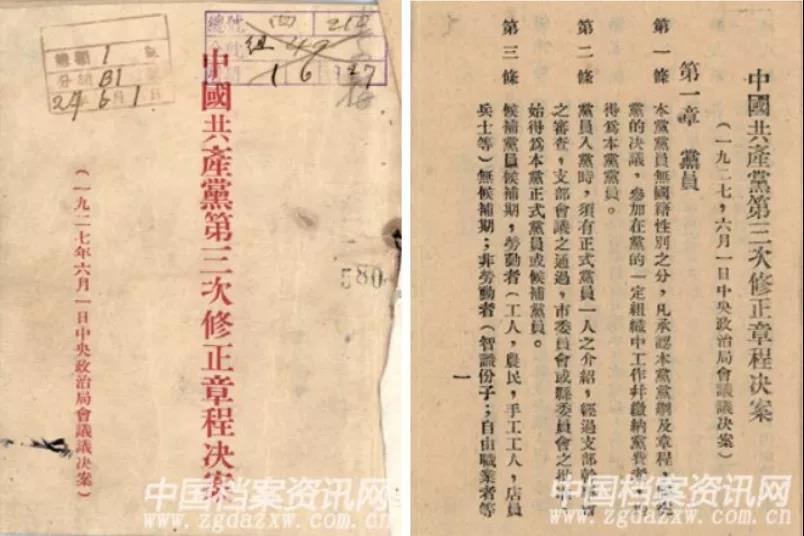 總號
類號 1
分類 B1
24年6月1日
組
16
27
中國共產黨第三次修正章程決案
（一九二七年六月一日中央政治局會議議決案）
580
中國共產黨第三次修正章程決案
（一九二七，六月一日中央政治局會議議決案）
第一章 黨員
第一條 本黨黨員無國籍性別之分，凡承認本黨黨綱及章程，
黨的決議，參加在黨的一定組織中工作幷繳納黨費
得爲本黨黨員。
第二條 黨員入黨時，須有正式黨員一人之介紹，經過支部
之審查，支部會議之通過，市委員會或縣委員會之批
始得爲本黨正式黨員或候補黨員。
第三條 候補黨員候補期，勞動者（工人，農民，手工工人，店員
兵士等）無候補期；非勞動者（智識份子；自由職業者等
一
中国档案资讯网
www.zgdazxw.com.cn
中国档案资讯网
www.zgdazxw.com.cn